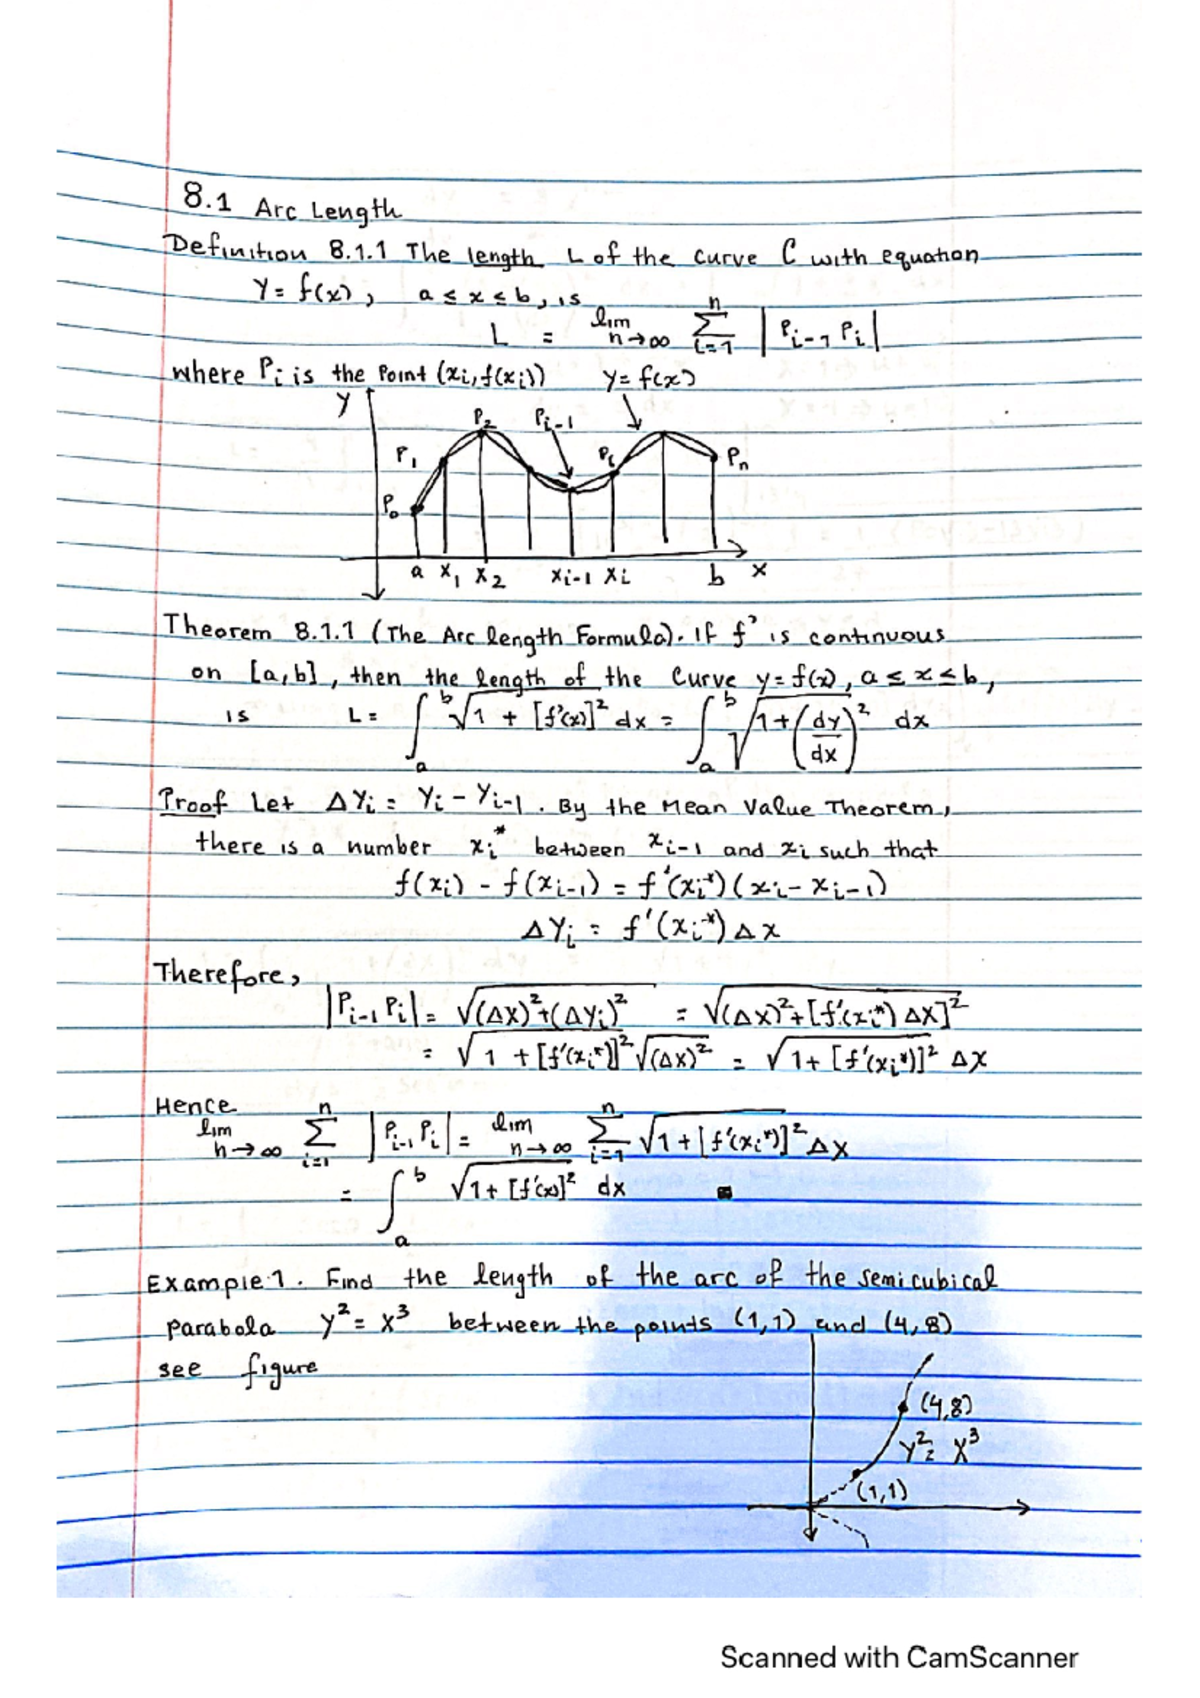 8.1 Arc Length
Definition 8.1.1 The length L of the curve C with equation
y = f(x), a ≤ x ≤ b, is
L = lim n→∞ n Σ i=1 |Pi-1 Pi|
where Pi is the Point (xi, f(xi)) y = f(x)
y
P2 Pi-1
P1 Pi Pn
P0
a x1 x2 xi-1 xi b x
Theorem 8.1.1 (The Arc length Formula). If f' is continuous
on [a,b], then the length of the Curve y = f(x), a ≤ x ≤ b,
is L = ∫ₐᵇ √(1 + [f'(x)]² dx = ∫ₐᵇ √(1 + (dy/dx)² dx
Proof Let Δyi = yi - yi-1. By the Mean Value Theorem,
there is a number xi* between xi-1 and xi such that
f(xi) - f(xi-1) = f'(xi*)(xi - xi-1)
Δyi = f'(xi*) Δx
Therefore,
|Pi-1 Pi| = √(Δx)²+(Δyi)² = √(Δx)²+[f'(xi*) Δx]²
= √1 + [f'(xi*)]² √(Δx)² = √1 + [f'(xi*)]² Δx
Hence
lim n→∞ n Σ i=1 |Pi-1 Pi| = lim n→∞ n Σ i=1 √1 + [f'(xi*)]² Δx
= ∫ₐᵇ √1 + [f'(x)]² dx ■
Example 1. Find the length of the arc of the semicubical
parabola y² = x³ between the points (1,1) and (4,8)
see figure
(4,8)
y² = x³
(1,1)
Scanned with CamScanner